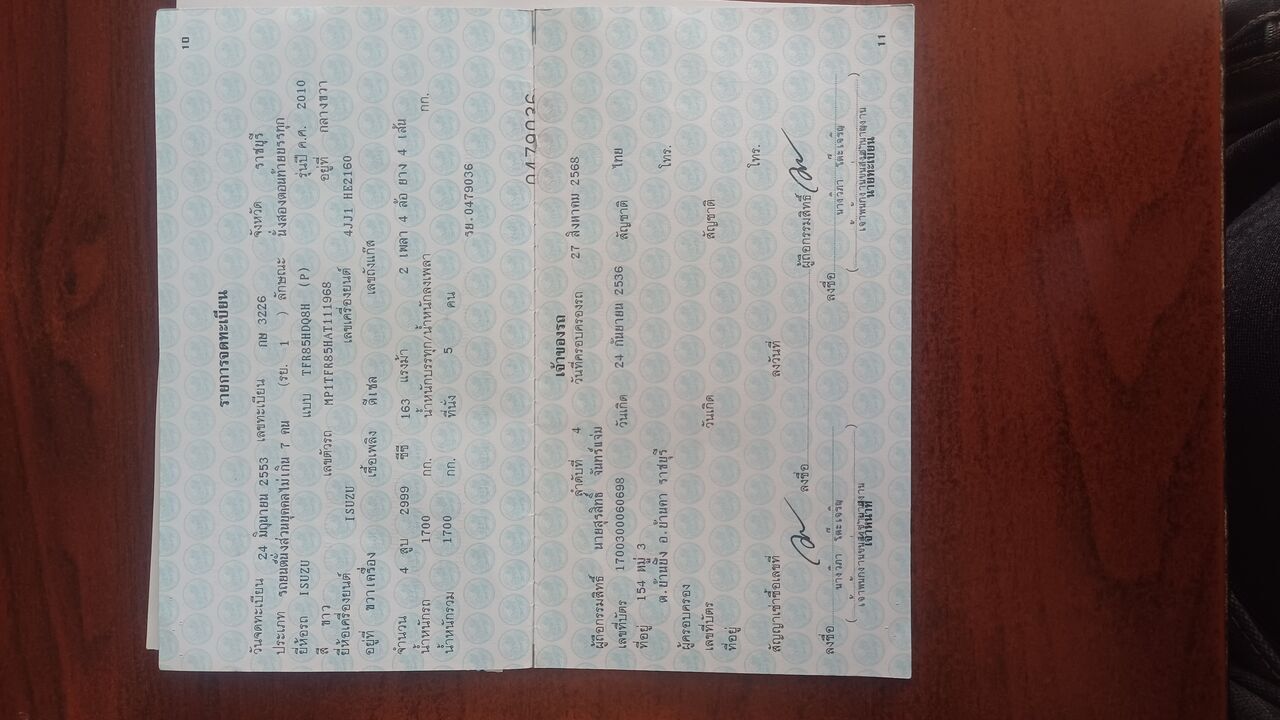 10
รายการจดทะเบียน
วันจดทะเบียน 24 มิถุนายน 2553 เลขทะเบียน กษ 3226 จังหวัด ราชบุรี
ประเภท รถยนต์นั่งส่วนบุคคลไม่เกิน 7 คน (รย. 1 ) ลักษณะ นั่งสองตอนท้ายบรรทุก
ยี่ห้อรถ ISUZU แบบ TFR85HDQ8H (P) รุ่นปี ค.ศ. 2010
สี ขาว เลขตัวรถ MP1TFR85HAT111968 อยู่ที่ กลางขวา
ยี่ห้อเครื่องยนต์ ISUZU เลขเครื่องยนต์ 4JJ1 HE2160
อยู่ที่ ขวาเครื่อง เชื่อเพลิง ดีเซล เลขถังแก๊ส
จำนวน 4 สูบ 2999 ซีซี 163 แรงม้า 2 เพลา 4 ล้อ ยาง 4 เส้น
น้ำหนักรถ 1700 กก. น้ำหนักบรรทุก/น้ำหนักลงเพลา กก.
น้ำหนักรวม 1700 กก. ที่นั่ง 5 คน
รย.0479036
0479036
เจ้าของรถ
ลำดับที่ 4 วันที่ครอบครองรถ 27 สิงหาคม 2568
ผู้ถือกรรมสิทธิ์ นายสุรสิทธิ์ จันทร์แจ่ม
เลขที่บัตร 1700300060698 วันเกิด 24 กันยายน 2536 สัญชาติ ไทย
ที่อยู่ 154 หมู่ 3 โทร.
ต.บ้านยิ้ง อ.บ้านคา ราชบุรี
ผู้ครอบครอง
เลขที่บัตร วันเกิด สัญชาติ
ที่อยู่ โทร.
สัญญาเช่าซื้อเลขที่ ลงวันที่
ลงชื่อ ผู้ถือกรรมสิทธิ์
ลงชื่อ นางวิภา โตะเจริญ ลงชื่อ นางวิภา โตะเจริญ
เจ้าพนักงานขนส่งชำนาญงาน เจ้าพนักงานขนส่งชำนาญงาน
เจ้าหน้าที่ นายทะเบียน
11